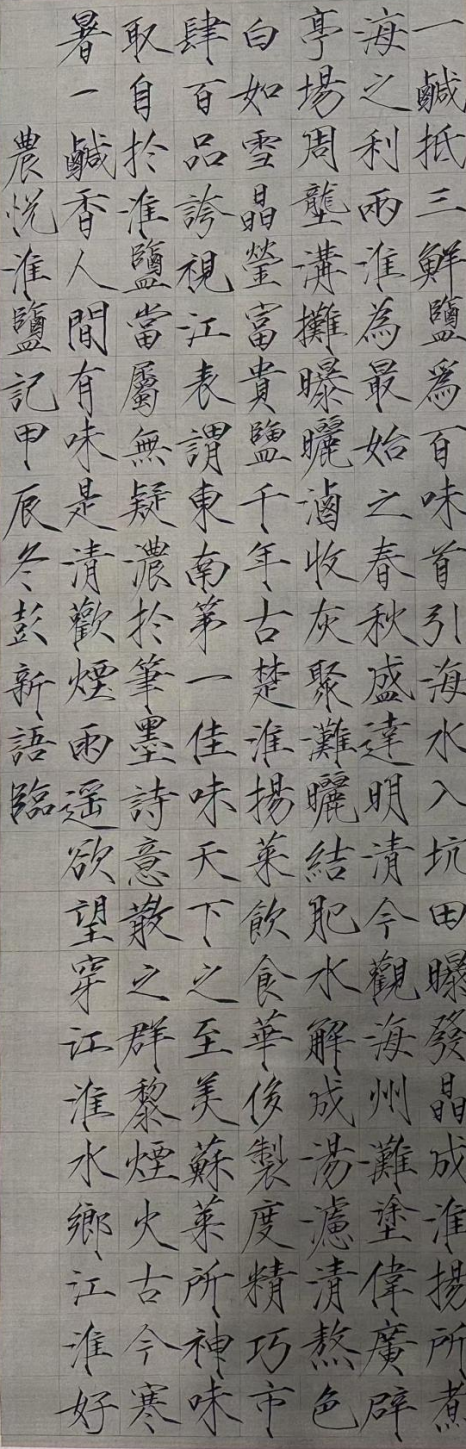 一鹹抵三鮮鹽爲百味首引海水入坑田曝發晶成淮揚所煮
海之利兩淮為最始之春秋盛達明清今觀海州灘塗偉廣辟
亭場周壟溝攤曝曬滷收灰聚灘曬結肥水解成湯濾清熬色
白如雪晶瑩富貴鹽千年古楚淮揚菜飲食華侈製度精巧市
肆百品誇視江表謂東南第一佳味天下之至美蘇菜所神味
取自於淮鹽當屬無疑濃於筆墨詩意散之群黎煙火古今寒
暑一鹹香人間有味是清歡煙雨遥欲望穿江淮水鄉江淮好
農悅淮鹽記甲辰冬彭新語臨